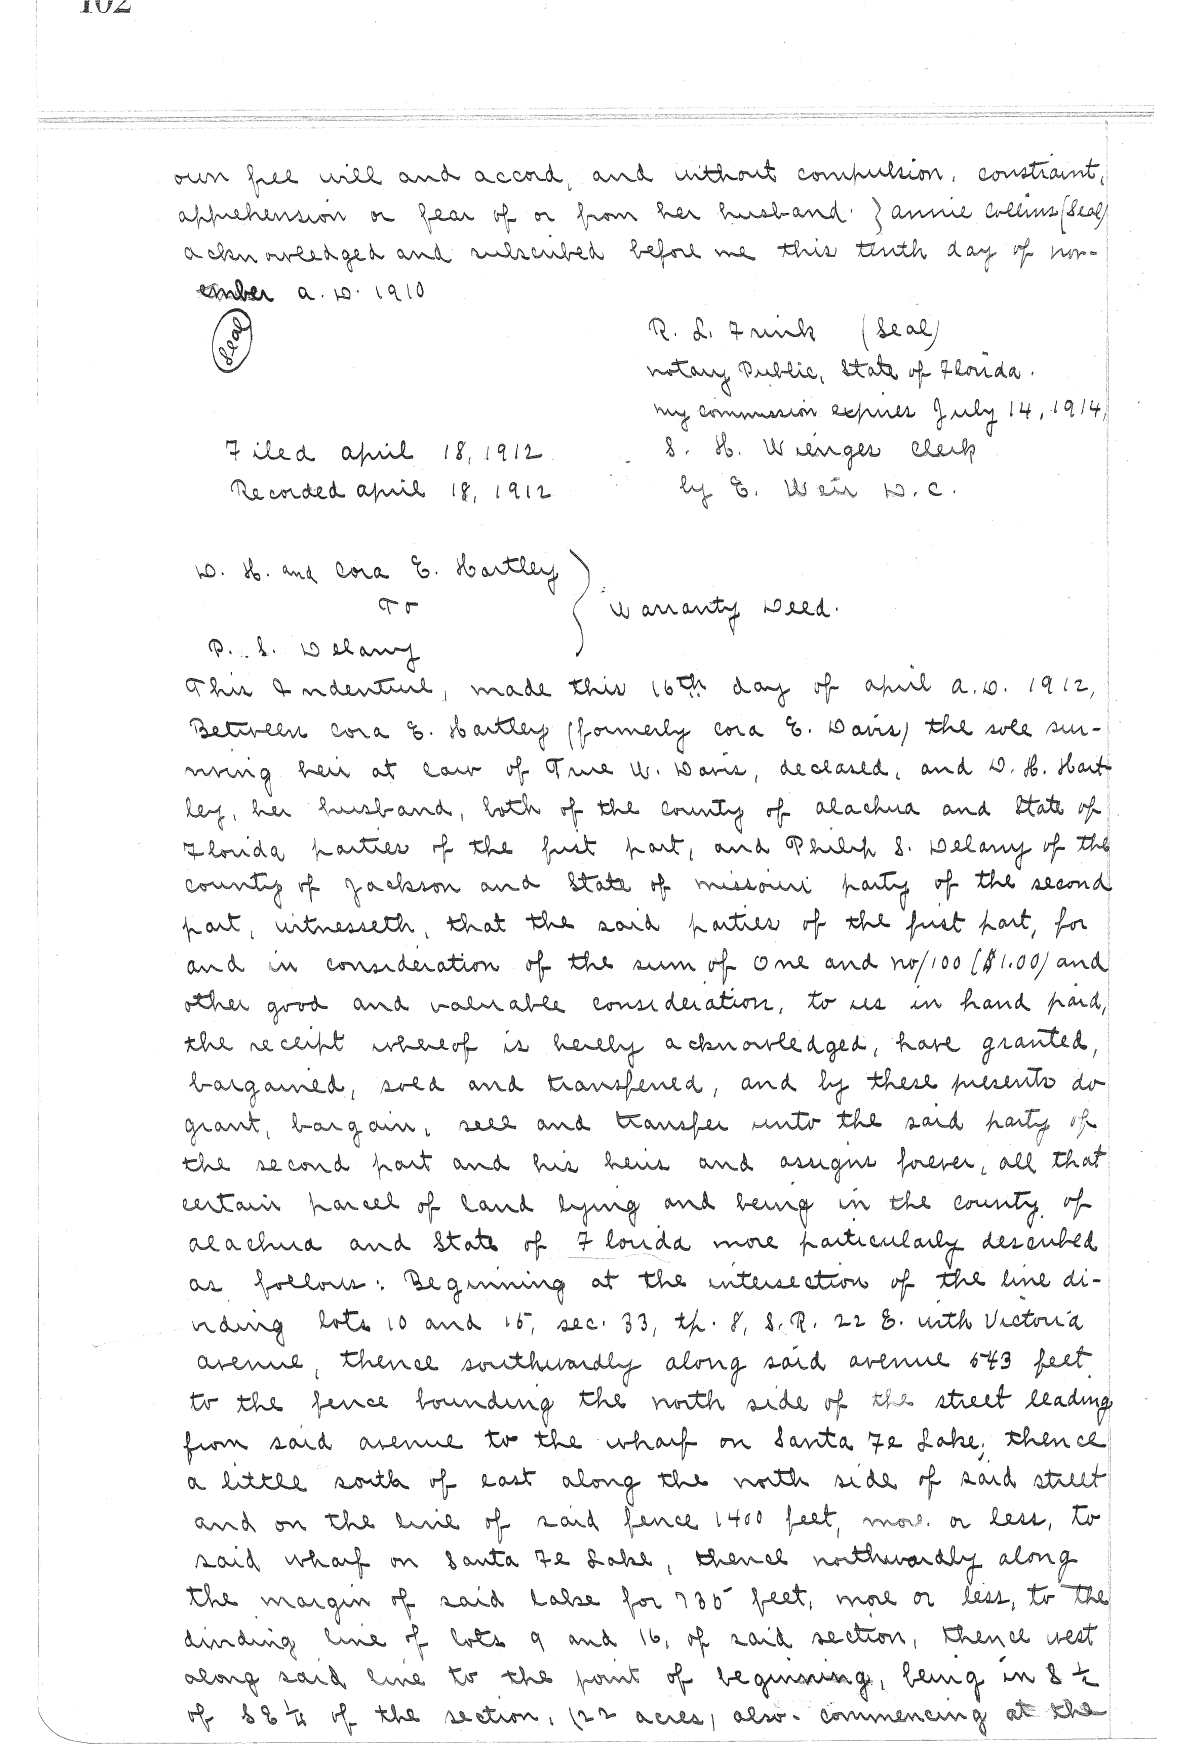 102
own free will and accord, and without compulsion, constraint,
apprehension or fear of or from her husband. } annie Collins (Seal)
acknowledged and subscribed before me this tenth day of nov-
ember a.D. 1910
(Seal)
R. L. (Seal)
notary Public, State of Florida.
my commission expires July 14, 1914,
Filed april 18, 1912
S. H. Wienges Clerk
Recorded april 18, 1912
by E. Weir D.C.
D. H. and Cora E. Hartley
To
Warranty Deed.
P. S. Delany
This Indenture, made this 16th day of april a.D. 1912,
Between Cora E. Hartley (formerly Cora E. Davis) the sole sur-
viving heir at law of True W. Davis, deceased, and D. H. Hart-
ley, her husband, both of the county of alachua and State of
Florida parties of the first part, and Philip S. Delany of the
county of Jackson and State of missouri party of the second
part, witnesseth, that the said parties of the first part, for
and in consideration of the sum of One and no/100 ($1.00) and
other good and valuable consideration, to us in hand paid,
the receipt whereof is hereby acknowledged, have granted,
bargained, sold and transferred, and by these presents do
grant, bargain, sell and transfer unto the said party of
the second part and his heirs and assigns forever, all that
certain parcel of land lying and being in the county of
alachua and State of Florida more particularly described
as follows: Beginning at the intersection of the line di-
viding lots 10 and 15, sec. 33, tp. 8, S.R. 22 E. with Victoria
avenue, thence southwardly along said avenue 543 feet
to the fence bounding the north side of the street leading
from said avenue to the wharf on Santa Fe Lake; thence
a little south of east along the north side of said street
and on the line of said fence 1400 feet, more or less, to
said wharf on Santa Fe Lake, thence northwardly along
the margin of said lake for 735 feet, more or less, to the
dividing line of lots 9 and 16, of said section, thence west
along said line to the point of beginning, being in S ½
of SE ¼ of the section, (22 acres) also - commencing at the